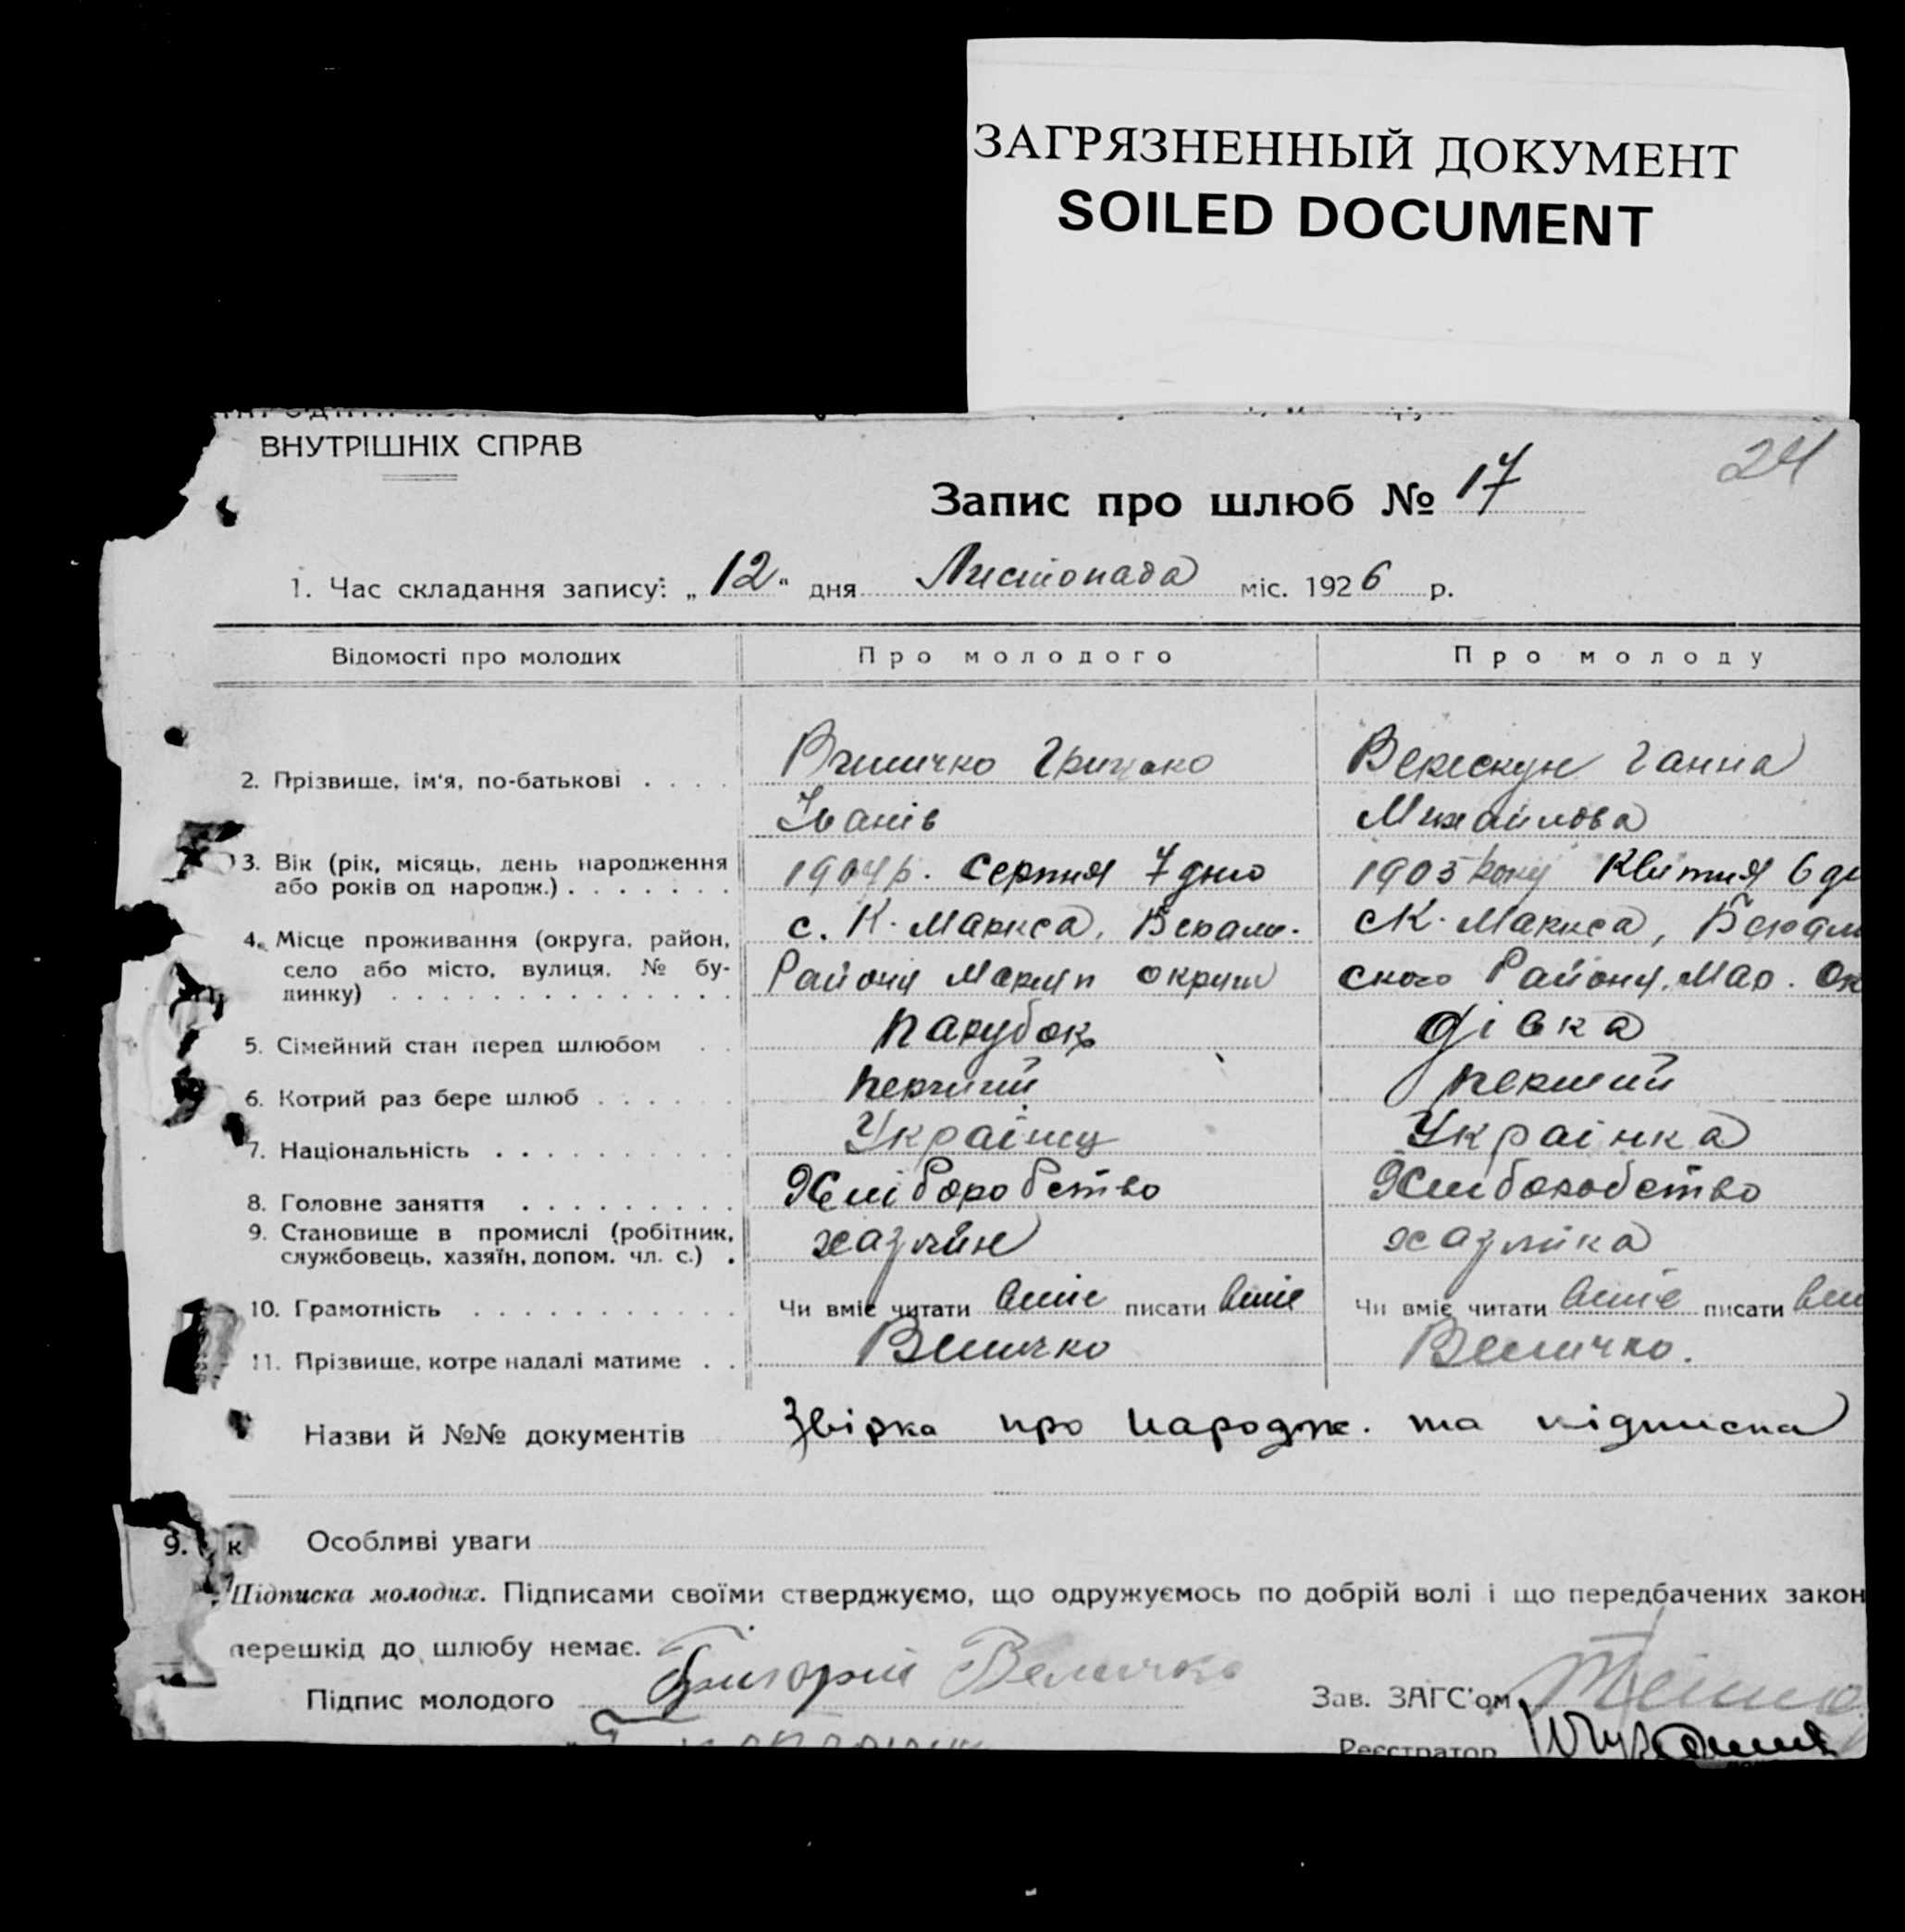 ЗАГРЯЗНЕННЫЙ ДОКУМЕНТ
SOILED DOCUMENT
ВНУТРІШНІХ СПРАВ
24
Запис про шлюб № 17
1. Час складання запису: „12" дня Листопада міс. 1926 р.
Відомості про молодих Про молодого Про молоду
2. Прізвище, ім'я, по-батькові . . . . Величко Грицько Верескун Ганна
Іванів Михайлова
3. Вік (рік, місяць, день народження 1904 р. Серпня 7 дню 1905 року Квітня 6
або років од народж.) . . . . . . .
4. Місце проживання (округа, район, с. К. Маркса, К. Маркса,
село або місто, вулиця, № бу- Району Мариуп округи ского Району, Мар. Ок
динку) . . . . . . . . . . . . . .
5. Сімейний стан перед шлюбом . . парубок дівка
6. Котрий раз бере шлюб . . . . . . перший перший
7. Національність . . . . . . . . . . Українц Українка
8. Головне заняття . . . . . . . . . Хліборобство Хліборобство
9. Становище в промислі (робітник, хазяйн хазяйка
службовець, хазяїн, допом. чл. с.) .
10. Грамотність . . . . . . . . . . . . Чи вміє читати вміє писати вміє Чи вміє читати вміє писати
11. Прізвище, котре надалі матиме . . Величко Величко.
Назви й №№ документів Звірка про народж. та підписка
9. к Особливі уваги
Підписка молодих. Підписами своїми стверджуємо, що одружуємось по добрій волі і що передбачених закон
перешкід до шлюбу немає.
Підпис молодого Григорий Величко Зав. ЗАГС'ом
Реєстратор